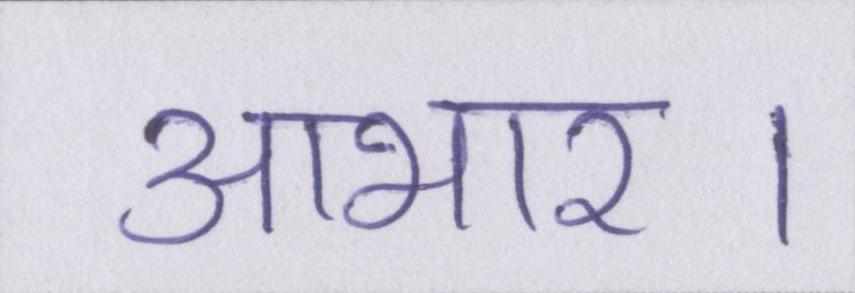 आभार।